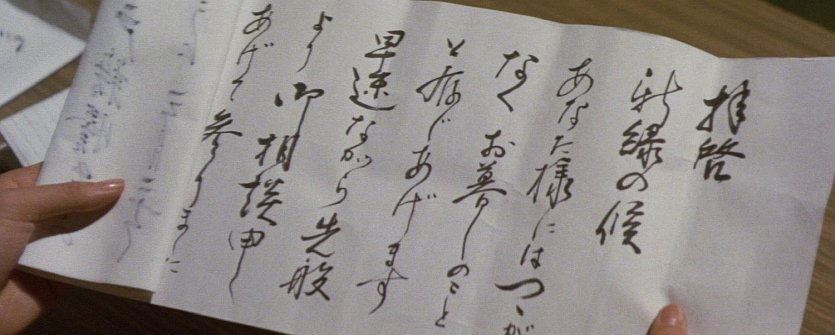 拝啓
新緑の候
あなた様にはつゝが
なくお暮しのこと
と存じあげます
早速ながら先般
より御相談申し
あげて参りました